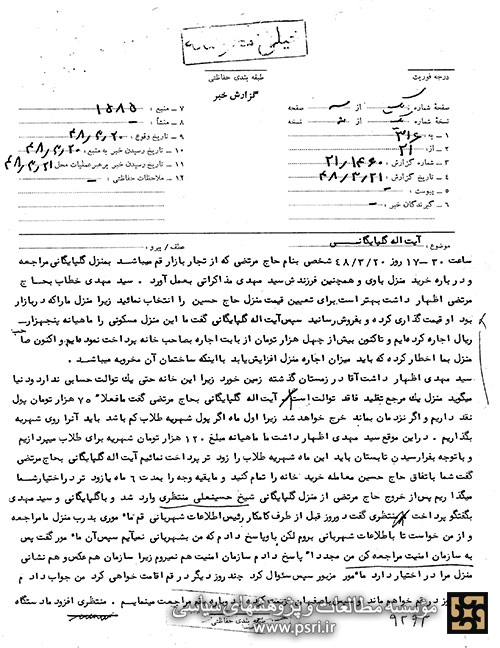 خیلی محرمانه
درجه فوریت
طبقه بندی حفاظتی
گزارش خبر
صفحه شماره: یک از سه صفحه
نسخه شماره: یک از نسخه
۱ ـ به: ۳۱۶
۲ ـ از: ۲۱
۳ ـ شماره گزارش: ۲۱/۱۴۶۰
۴ ـ تاریخ گزارش: ۴۸/۳/۲۱
۵ ـ پیوست: ـ
۶ ـ گیرندگان خبر: ـ
۷ ـ منبع: ۱۵۸۵
۸ ـ منشأ: ـ
۹ ـ تاریخ وقوع: ۴۸/۳/۲۰
۱۰ ـ تاریخ رسیدن خبر به منبع: ۴۸/۳/۲۰
۱۱ ـ تاریخ رسیدن خبر برهبر عملیات محل: ۴۸/۳/۲۱
۱۲ ـ ملاحظات حفاظتی: ـ
موضوع: آیت اله گلپایگانی
عطف/پیرو:
ساعت ۳۰-۱۷ روز ۴۸/۳/۲۰ شخصی بنام حاج مرتضی که از تجار بازار قم میباشد بمنزل گلپایگانی مراجعه
و درباره خرید منزل باوی و همچنین فرزندش سید مهدی مذاکراتی بعمل آورد. سید مهدی خطاب بحاج
مرتضی اظهار داشت بهتر است برای تعیین قیمت منزل حاج حسین را انتخاب نمائید زیرا منزل ما را که در بازار
بود او قیمت گذاری کرده و بفروش رسانید سپس آیت اله گلپایگانی گفت ما این منزل مسکونی را ماهیانه پنجهزار
ریال اجاره کرده ایم و تاکنون بیش از چهل هزار تومان از بابت اجاره بصاحب خانه پرداخت نموده ایم و اکنون صاحب
منزل بما اخطار کرده که باید میزان اجاره منزل افزایش یابد با اینکه ساختمان آن مخروبه میباشد.
سید مهدی اظهار داشت آقا در زمستان گذشته زمین خورد زیرا این خانه حتی یک توالت حسابی ندارد و دنیا
میگوید منزل یک مرجع تقلید فاقد توالت است آیت اله گلپایگانی بحاج مرتضی گفت ما فعلا" ۷۵ هزار تومان پول
نقد داریم و اگر نزدمان بماند خرج خواهد شد زیرا اول ماه اگر پول شهریه طلاب کم باشد باید آنرا روی شهریه
بگذاریم. در این موقع سید مهدی اظهار داشت ما ماهیانه مبلغ ۱۲۰ هزار تومان شهریه برای طلاب میپردازیم
و با توجه بفرارسیدن تابستان باید این ماه شهریه طلاب را زود تر پرداخت نمائیم آیت اله گلپایگانی بحاج مرتضی
گفت شما باتفاق حاج حسین معامله خرید خانه را تمام کنید و مابقیه وجه را بمدت ۶ ماه یا زود تر در اختیار شما
میگذاریم پس از خروج حاج مرتضی از منزل گلپایگانی شیخ حسینعلی منتظری وارد شد و با گلپایگانی و سید مهدی
بگفتگو پرداخت منتظری گفت دو روز قبل از طرف کامکار رئیس اطلاعات شهربانی قم مأموری بدرب منزل ما مراجعه
و از من خواست تا باطلاعات شهربانی بروم لکن باو پاسخ دادم که من بشهربانی نمیآیم سپس آن مأمور گفت پس
به سازمان امنیت مراجعه کن من مجددا" پاسخ دادم سازمان امنیت هم نمیروم زیرا سازمان هم عکس و هم نشانی
منزل مرا در اختیار دارد مأمور مزبور سپس سئوال کرد چند روز دیگر در قم اقامت خواهی کرد من جواب دادم
مراجعت مینمایم. منتظری افزود ما دستگاه
مؤسسه مطالعات و پژوهشهای سیاسی
www.psri.ir
طبقه بندی حفاظتی